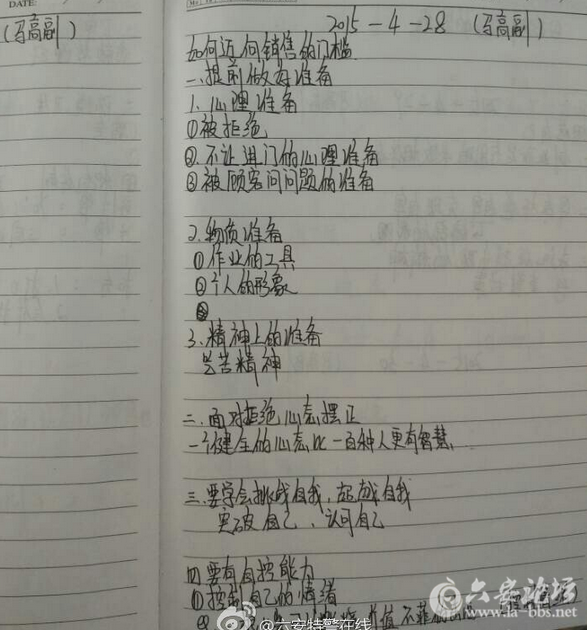 DATE
(冯高副)
2015-4-28 (冯高副)
如何迈向销售的门槛
一.提前做好准备
1.心理准备
①被拒绝
②.不让进门的心理准备
③被顾客问问题的准备
2.物质准备
①作业的工具
②个人的形象
3.精神上的准备
吃苦精神
二.面对拒绝心态摆正
一个健全的心态比一百种人更有智慧.
三.要学会挑战自我,超越自我
突破自己、认可自己
四要有自控能力
①控制自己的情绪
价值
六安论坛
www.la-bbs.net
@六安特警在线